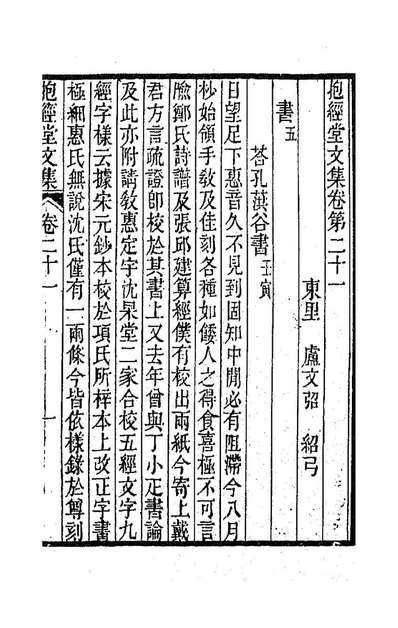 抱經堂文集卷第二十一
東里 盧文弨 紹弓
書五
荅孔葓谷書壬寅
日望足下惠音久不見到固知中閒必有阻滯今八月
杪始領手敎及佳刻各種如餧人之得食喜極不可言
鄭氏詩譜及張邱建算經僕有校出兩紙今寄上戴
君方言疏證卽校於其書上又去年曾與丁小疋書論
及此亦附請敎惠定宇沈杲堂二家合校五經文字九
經字樣云據宋元鈔本校於項氏所梓本上改正字書
極細惠氏無說沈氏僅有一兩條今皆依樣錄於尊刻
抱經堂文集 卷二十一 一